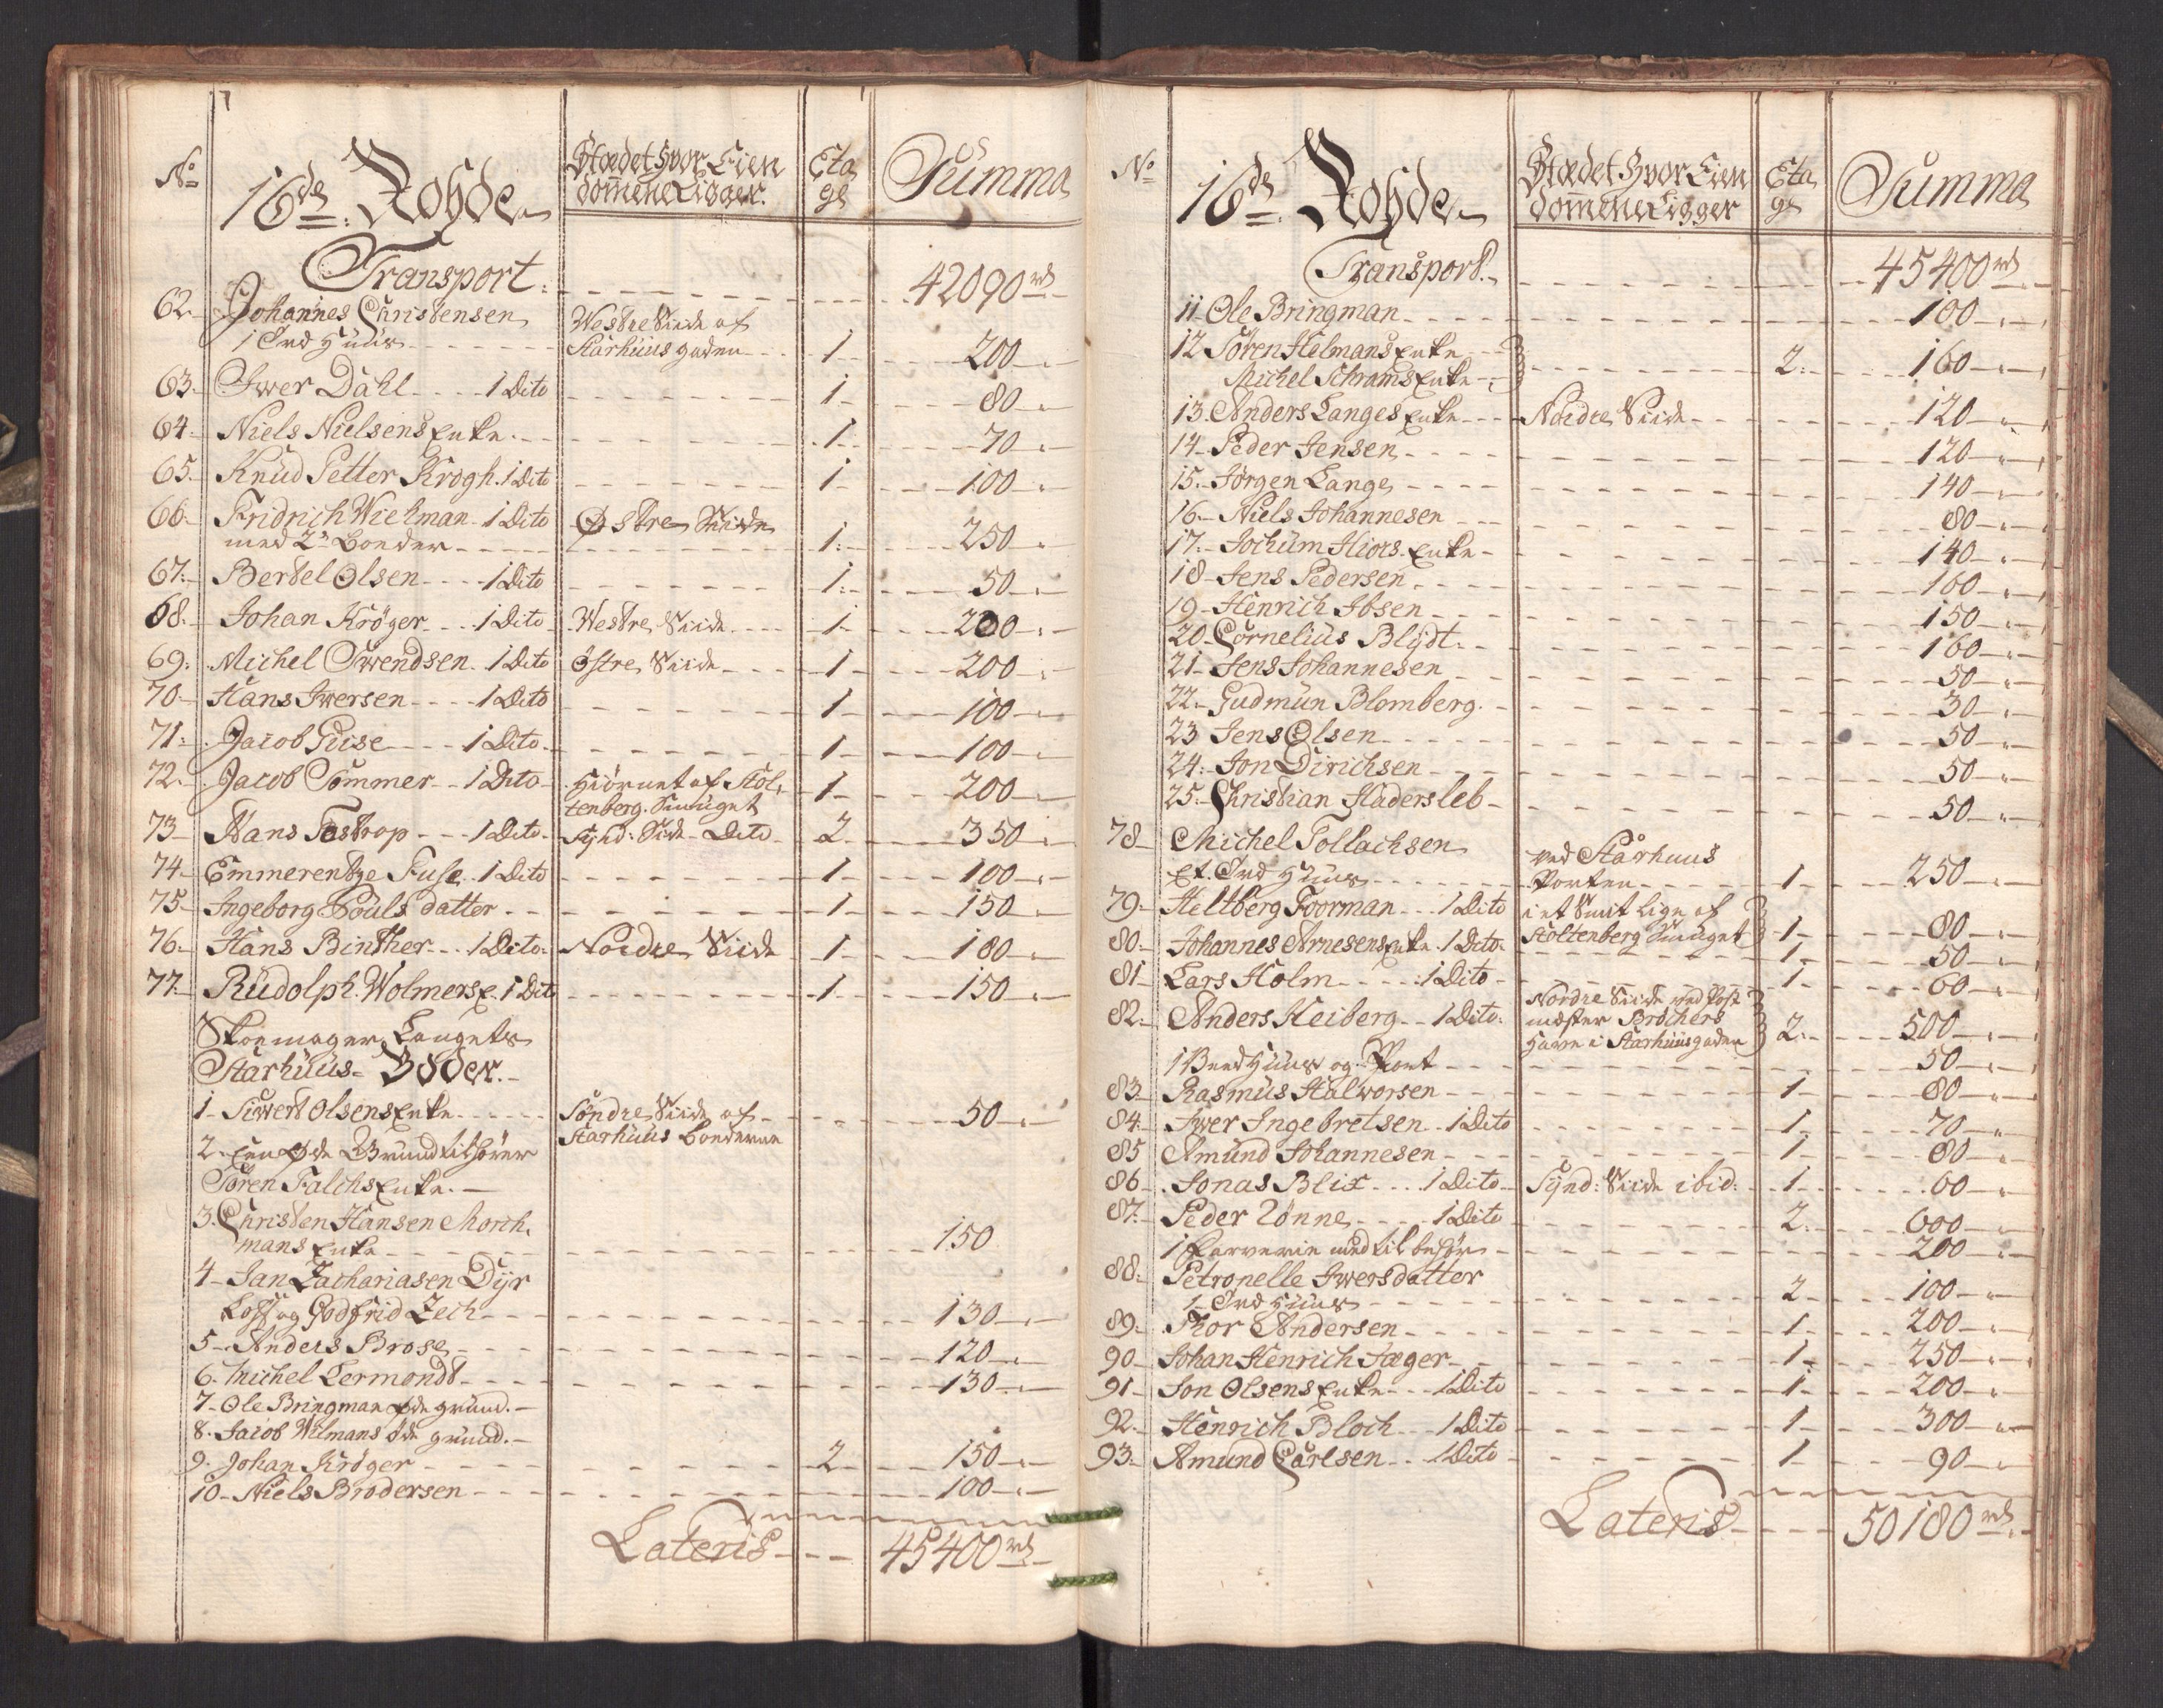 No 16de Rohde Stædet hvor Eien Eta Summa
dommene Ligger. ge
Transport 42090 rd
62. Johannes Christensen Westre Siide af
1 Ind Huus Starhuus gaden 1 200
63. Iwer Dahl 1 Dito 1 80
64. Niels Nielsens Enke 1 70
65. Knud Petter Krogh. 1 Dito 1 100
66. Fridrich Wielman 1 Dito Østre Siide
med 2de Boeder 1 250
67. Bertel Olsen 1 Dito 1 50
68. Johan Kröger 1 Dito Westre Siide 1 200
69. Michel Swendsen 1 Dito Östre Siide 1 200
70. Hans Iwersen 1 Dito 1 100
71. Jacob Giise 1 Dito 1 100
72. Jacob Sommer 1 Dito Hiörnet af Stol-
tenberg. Smuget 1 200
73 Hans Tostrop 1 Dito Synd: Side Dito 2 350
74. Emmerentze Fuse 1 Dito 1 100
75 Ingeborg Pouls datter 1 150
76. Hans Binther 1 Dito Nordre Siide 1 180
77. Rudolph Wolmers E. 1 Dito 1 150
Skoemager Laugets
Starhuus Boder.
1 Siwert Olsens Enke Söndre Siide af 50
Starhuus Boederne
2. Een Øde Grund tilhörer
Sören Falchs Enke.
3. Christen Hansen Morch.
mans Enke 150
4 Jan Zachariasen Dÿr
Koff og Godfrid Zech 130
5 Anders Brose 120
6. Michel Lermondt 130
7 Ole Bringman øde grund.
8. Jacob Wilmans öde grund.
9. Johan Kröger 2 150
10 Niels Brodersen 100
Lateris 45400 rd
No 16de Rohde Stædet hvor Eien Eta Summa
dommene Ligger ge
Transport. 45400 rd
11 Ole Bringman 100
12 Sören Helmans Enke
Michel Schrams Enke 2. 160
13. Anders Langes Enke Nordre Siide 120
14 Peder Jensen 120
15. Jörgen Lange 140
16. Niels Johannesen 80
17. Jochum Hiors Enke 140
18 Jens Pedersen 160
19 Henrich Ibsen 150
20 Cornelius Blÿdt. 160
21 Jens Johannesen 50
22. Gudmun Blomberg. 30
23 Jens Olsen 50
24. Jon Dirichsen 50
25. Christian Hadersleb 50
78 Michel Tollachsen ved Starhuus
Et Ind Huus Porten 1 250
79 Heltberg Foorman 1 Dito i et Smit lige af
Stoltenberg Smuget 1 80
80. Johannes Arnesens Enke 1 Dito 1 50
81 Lars Holm 1 Dito 1 60
82. Anders Heiberg 1 Dito Nordre Siide ved Post
mester Brochers
Hawe i Starhuusgaden 2. 500
1 Bred Huus og Port 50
83 Rasmus Halworsen 1 80
84. Iwer Ingebretsen 1 Dito 1 70
85 Amund Johannesen 1 80
86 Jonas Blix 1 Dito Sÿnd: Siide ibid: 1 60
87. Peder Lönne 1 Dito 2. 600
1 Barverie med tilbehör 200
88. Petronelle Iwersdatter
1 Ind Huus 2 100
89. Thor Andersen 1 200
90 Johan Henrich Jæger 1 250
91 Jon Olsens Enke 1 Dito 1 200
92. Henrich Bloch 1 Dito 1 300
93. Amund Carlsen 1 Dito 1 90
Lateris 50180 rd